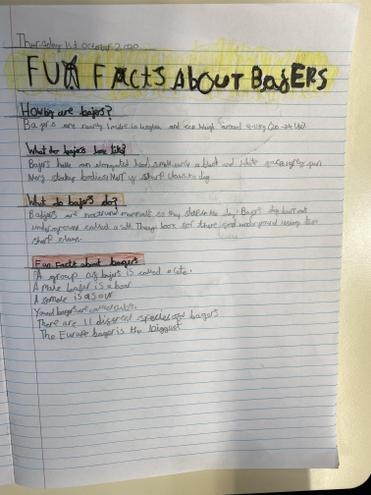 Thursday 1st October 2020
FUN FACTS ABOUT BaJERS
How big are bajers?
Bajers are nearly 1 metre in length and can weigh around
What do bajers look like?
Bajers have an elongated head small black and white face grey fur
stocky bodies sharp claws to dig
What do bajers do?
Badjers are nocturnal mammals so they sleep in the day! Bajers dig burrows
underground called a sett. They look for there food underground using
sharp claws.
Fun Facts about bagers
A group of bajers is called a cete.
A Male bajer is a boar
A female is a sow
Young bagers are called cubs.
There are 11 different species of bagers
The Europe bager is the biggest